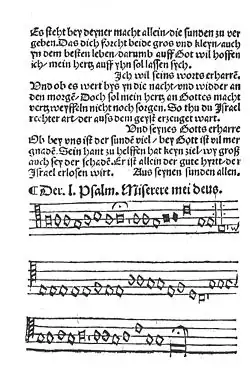 Es steht bey deyner macht allein/die sunden zu ver
geben. Das dich forcht beide gros vnd kleyn/auch
yn dem besten leben/darumb auff Got wil hoffen
ich/mein hertz auff yhn sol lassen sych.
Ich wil seins worts erharrē.
Vnd ob es wert bys yn die nacht/vnd widder an
den morgē/Doch sol mein hertz an Gottes macht
vertzweyffeln nicht noch sorgen. So thu du Israel
rechter art/der aufs dem geyst erzeuget wart.
Vnd seynes Gotts erharre
Ob bey vns ist der sundē viel/bey Gott ist vil mer
gnadē. Sein hant zu helffen hat keyn ziel/wy groß
auch sey der schadē. Er ist allein der gute hyrtt/der
Israel erlosen wirt. Aus seynen sunden allen.
¶ Der. l. Psalm. Miserere mei deus.